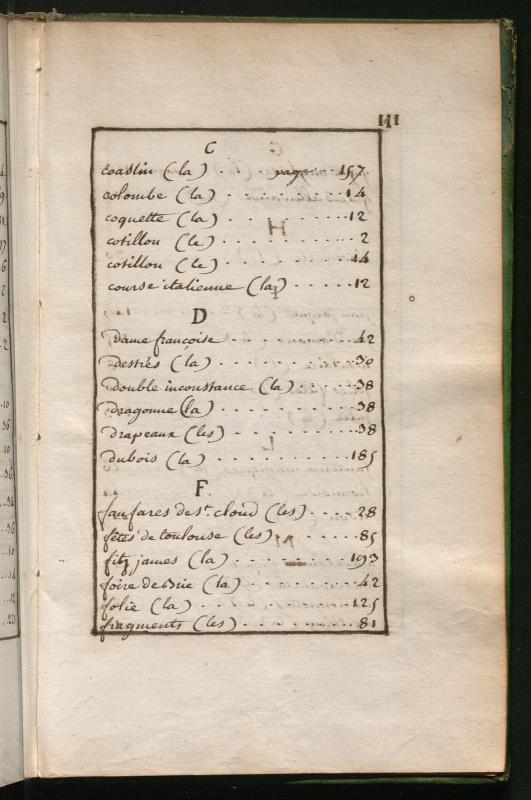 III
C
coaslin (la) . . page . . . 157
colombe (la) . . . . . . . . . 14
coquette (la) . . . . . . . . . 12
cotillon (le) . . . . . . . . . . 2
cotillon (le) . . . . . . . . . 14
course italienne (la) . . . . . 12
D
Dame françoise . . . . . . . . 42
Destrés (la) . . . . . . . . . . 30
Double inconstance (la) . . . . . 38
Dragonne (la) . . . . . . . . . 38
Drapeaux (les) . . . . . . . . 38
Dubois (la) . . . . . . . . . . 185
F
fanfares de st. cloud (les) . . . . 28
fêtes de toulouse (les) . . . . . 85
fitz james (la) . . . . . . . . 193
foire de Brie (la) . . . . . . . . 42
folie (la) . . . . . . . . . . . 125
fragments (les) . . . . . . . . 81